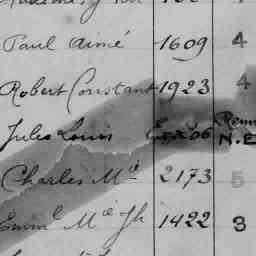 Paul Aimé 1609 4
Robert Constant 1923 4
Jules Louis
N.E
Charles M^ie 2173 5
Emm^l M^ie Jh 1422 3